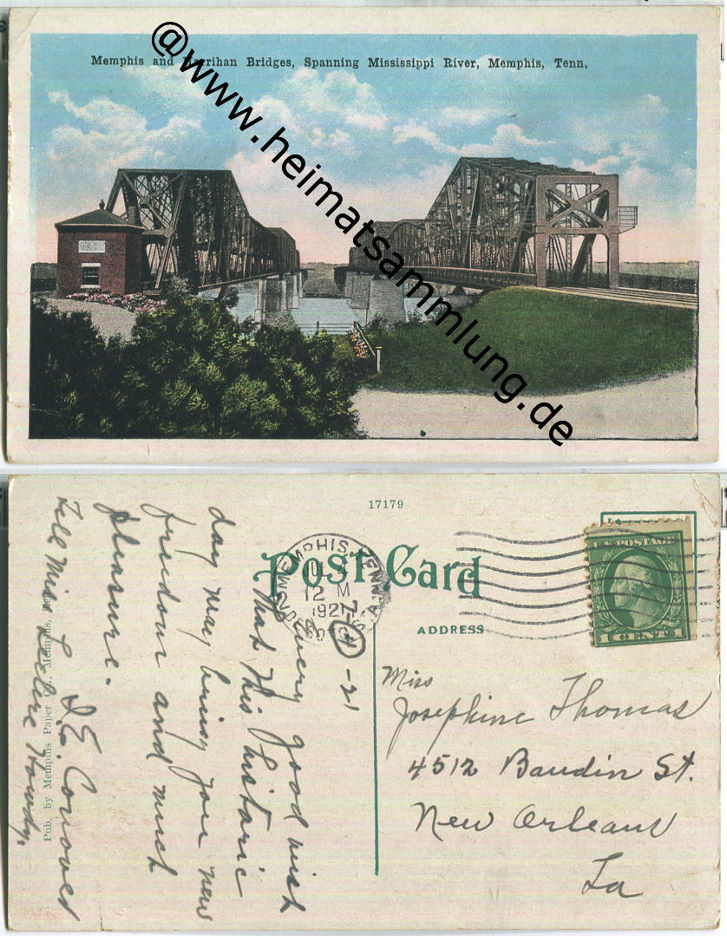 Memphis and Harrihan Bridges, Spanning Mississippi River, Memphis, Tenn.
@www.heimatsammlung.de
17179
Post Card
ADDRESS
MEMPHIS, TENN.
12 M
1921
U.S. POSTAGE
1 CENT 1
7-4-21
Every good wish
that this historic
day may bring you new
freedom and much
pleasure.
I. E. Conover
Tell Miss Leclere Howdy.
Pub. by Memphis Paper Co., Memphis,
Miss
Josephine Thomas
4512 Baudin St.
New Orleans
La